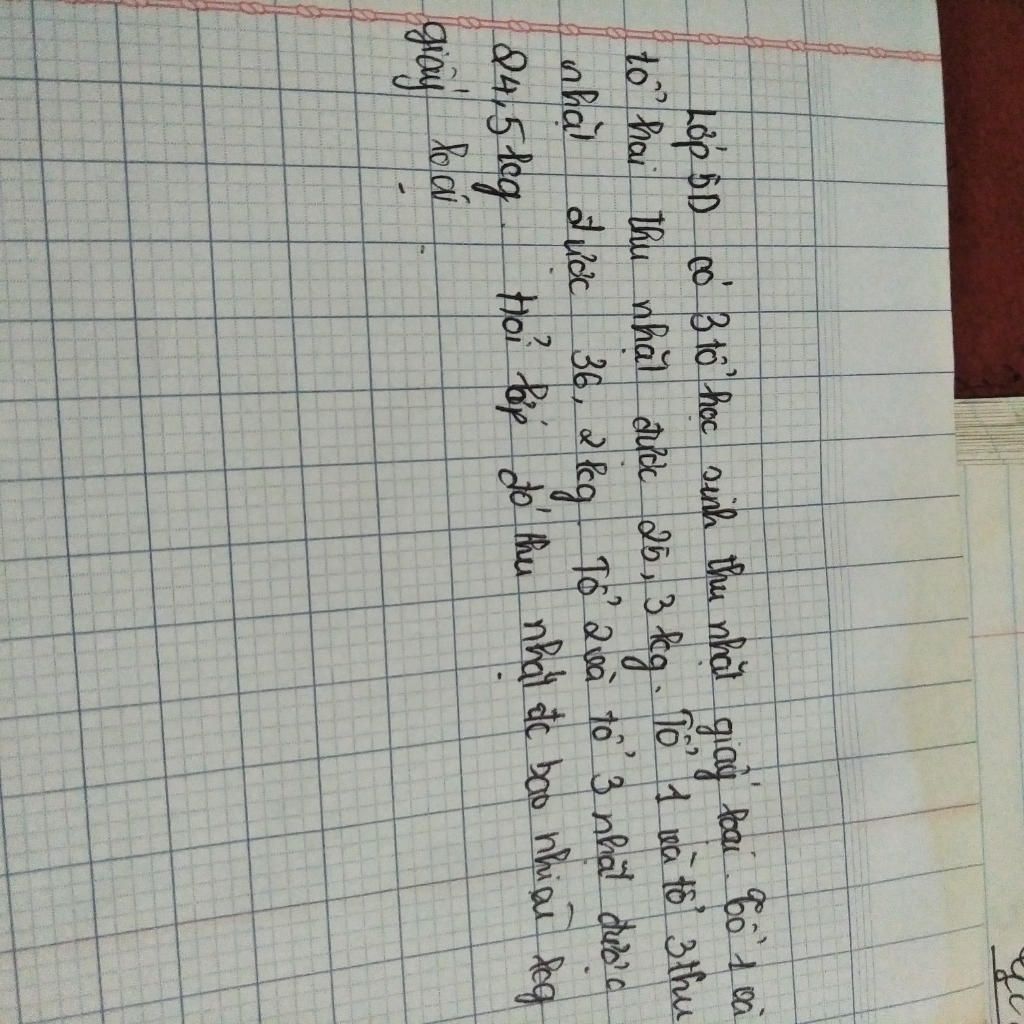 Lớp 5D có 3 tổ học sinh thu nhặt giấy loại. Tổ 1 và
tổ hai thu nhặt được 25,3 kg. Tổ 1 và tổ 3 thu
nhặt được 36,2 kg. Tổ 2 và tổ 3 nhặt được
84,5 kg. Hỏi lớp đó thu nhặt đc bao nhiêu kg
giấy loại